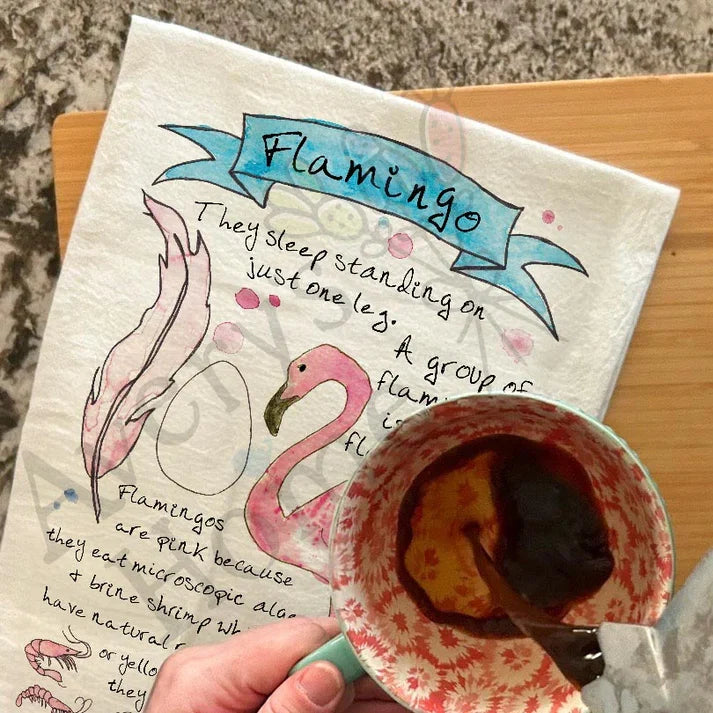 Flamingo
They sleep standing on
just one leg.
A group of
is
Flamingos
are pink because
they eat microscopic
& brine shrimp
have natural
or
they
Avery's
Home